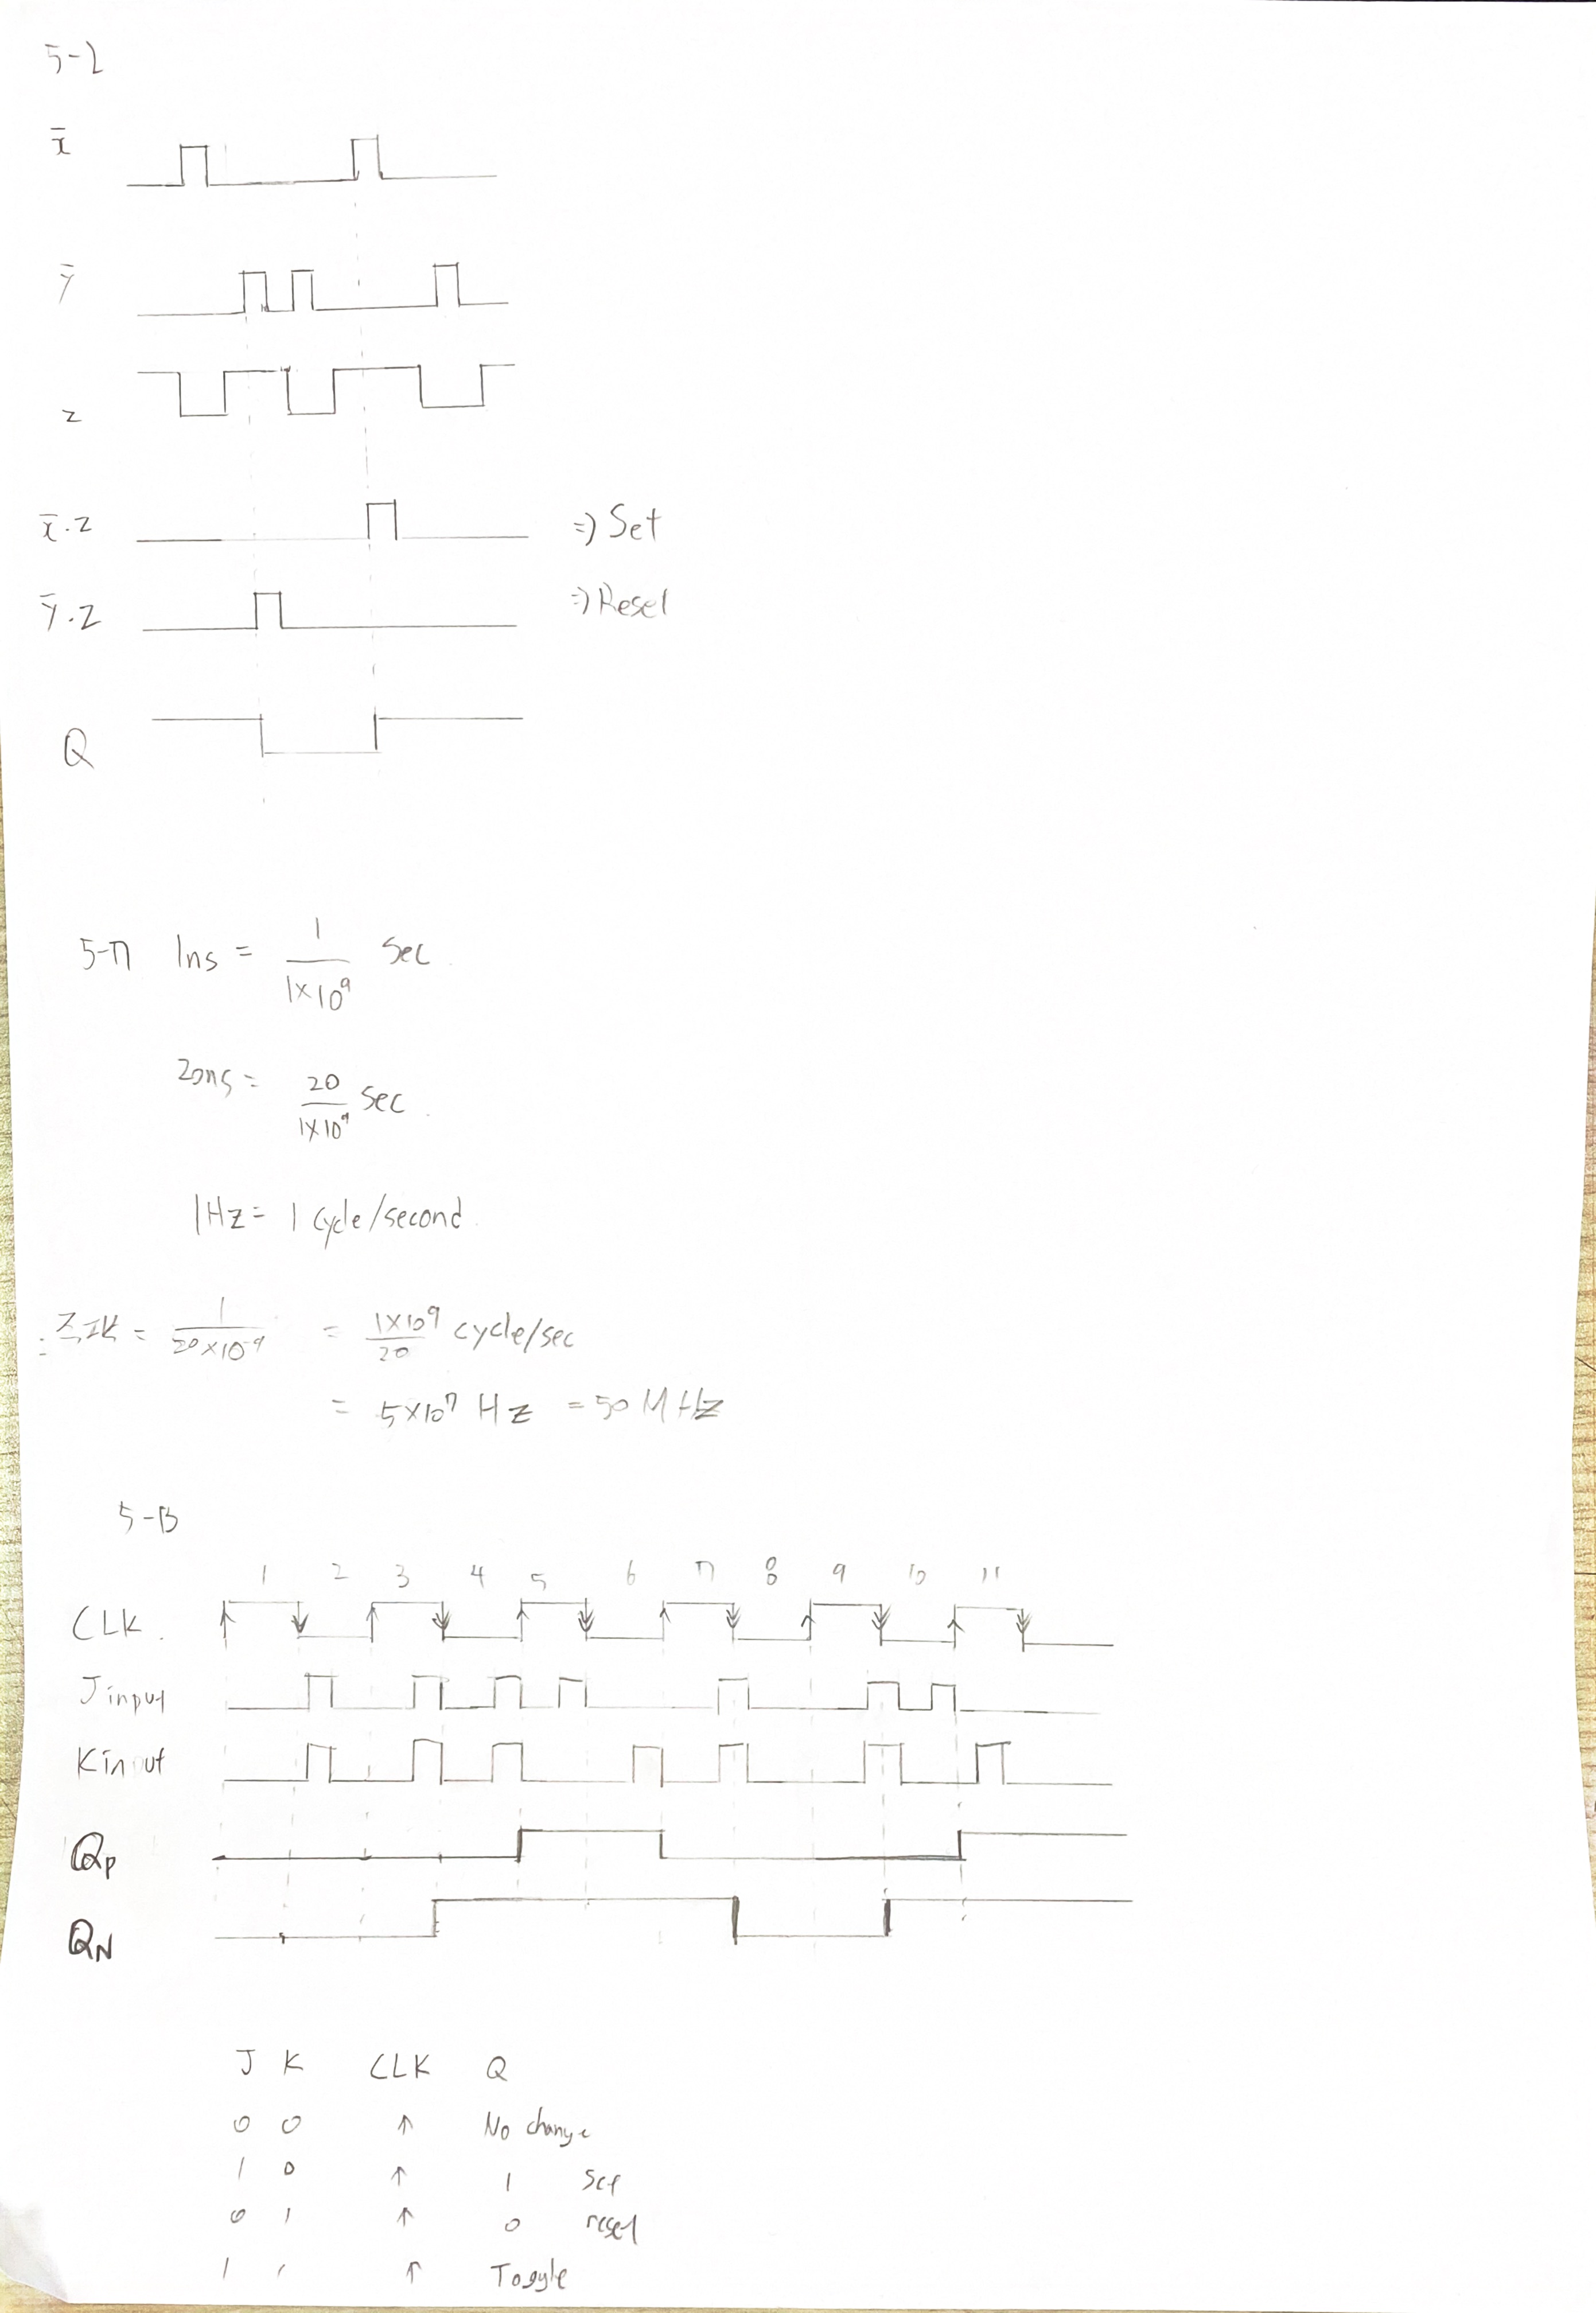 5-2
x̄
ȳ
z
x̄·z ⇒ Set
ȳ·z ⇒ Reset
Q
5-7 1ns = 1/1×10⁹ sec
20ns = 20/1×10⁹ sec.
1Hz = 1 cycle/second
= 1/20×10⁻⁹ = 1×10⁹/20 cycle/sec
= 5×10⁷ Hz = 50MHz
5-13
1 2 3 4 5 6 7 8 9 10 11
CLK.
J input
K input
Qp
QN
J K CLK Q
0 0 ↑ No change
1 0 ↑ 1 set
0 1 ↑ 0 reset
1 1 ↑ Toggle